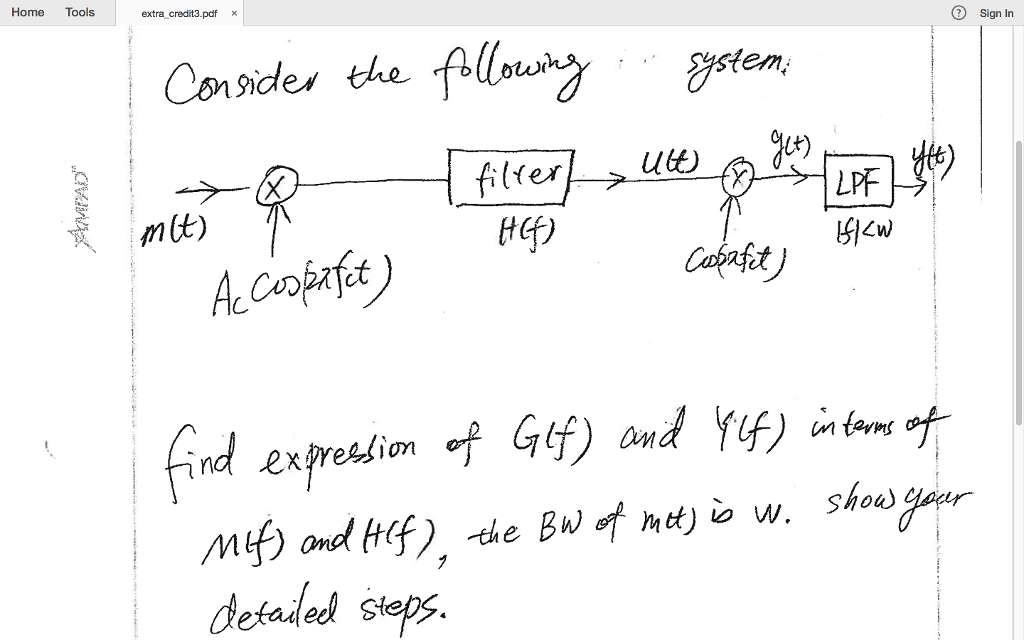 Home Tools extra_credit3.pdf × ? Sign In
Consider the following ... system.
m(t) X filter U(t) X g(t) LPF y(t)
H(f) |f|<w
Ac Cos(2πfct) Cos(2πfct)
"AMPAD"
find expression of G(f) and Y(f) in terms of
M(f) and H(f), the BW of m(t) is W. show your
detailed steps.